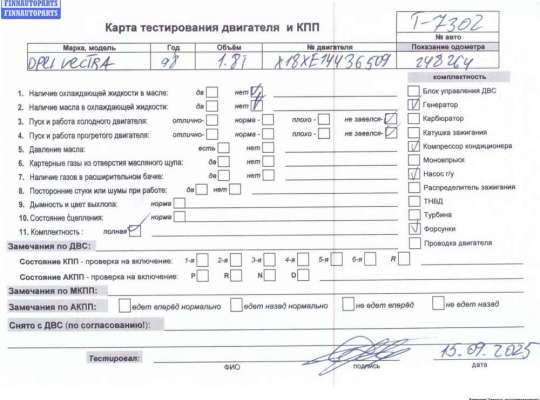 FINNAUTOPARTS
FINNAUTOPARTS
Карта тестирования двигателя и КПП
T-7302
№ авто
Марка, модель Год Объём № двигателя Показание одометра
OPEL VECTRA 98 1.8i X18XE14436509 248264
комплектность
1. Наличие охлаждающей жидкости в масле: да нет
2. Наличие масла в охлаждающей жидкости: да нет
3. Пуск и работа холодного двигателя: отлично- норма - плохо - не завелся-
4. Пуск и работа прогретого двигателя: отлично- норма - плохо - не завелся-
5. Давление масла: есть нет
6. Картерные газы из отверстия масляного щупа: да нет
7. Наличие газов в расширительном бачке: да нет
8. Посторонние стуки или шумы при работе: да нет
9. Дымность и цвет выхлопа: норма
10. Состояние сцепления: норма
11. Комплектность : полная
Блок управления ДВС
Генератор
Карбюратор
Катушка зажигания
Компрессор кондиционера
Моновпрыск
Насос г/у
Распределитель зажигания
ТНВД
Турбина
Форсунки
Проводка двигателя
Замечания по ДВС:
Состояние КПП - проверка на включение: 1-я 2-я 3-я 4-я 5-я 6-я R
Состояние АКПП - проверка на включение: P R N D
Замечания по МКПП:
Замечания по АКПП: едет вперёд нормально едет назад нормально не едет вперёд не едет назад
Снято с ДВС (по согласованию!):
Тестировал: 15.09.2025
ФИО подпись дата